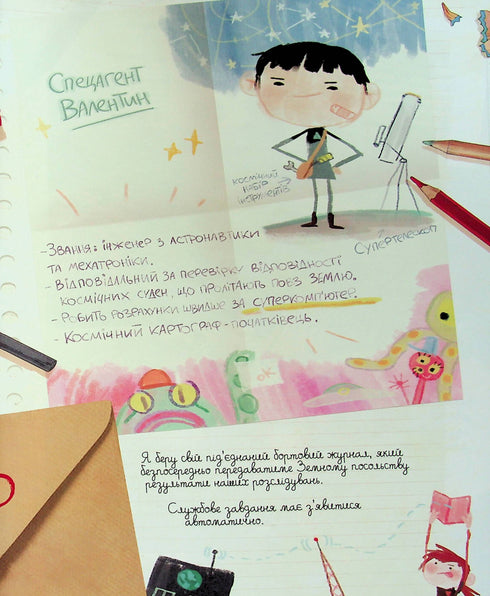 Спецагент
Валентин
космічний
набір
інструментів
Супертелескоп
- Звання: інженер з астронавтики
та мехатроніки.
- Відповідальний за перевірку відповідності
космічних суден, що пролітають повз Землю.
- Робить розрахунки швидше за суперкомп'ютер.
- Космічний картограф-початківець.
ОК
Я беру свій під'єднаний бортовий журнал, який
безпосередньо передаватиме Земному посольству
результати наших розслідувань.
Службове завдання має з'явитися
автоматично.